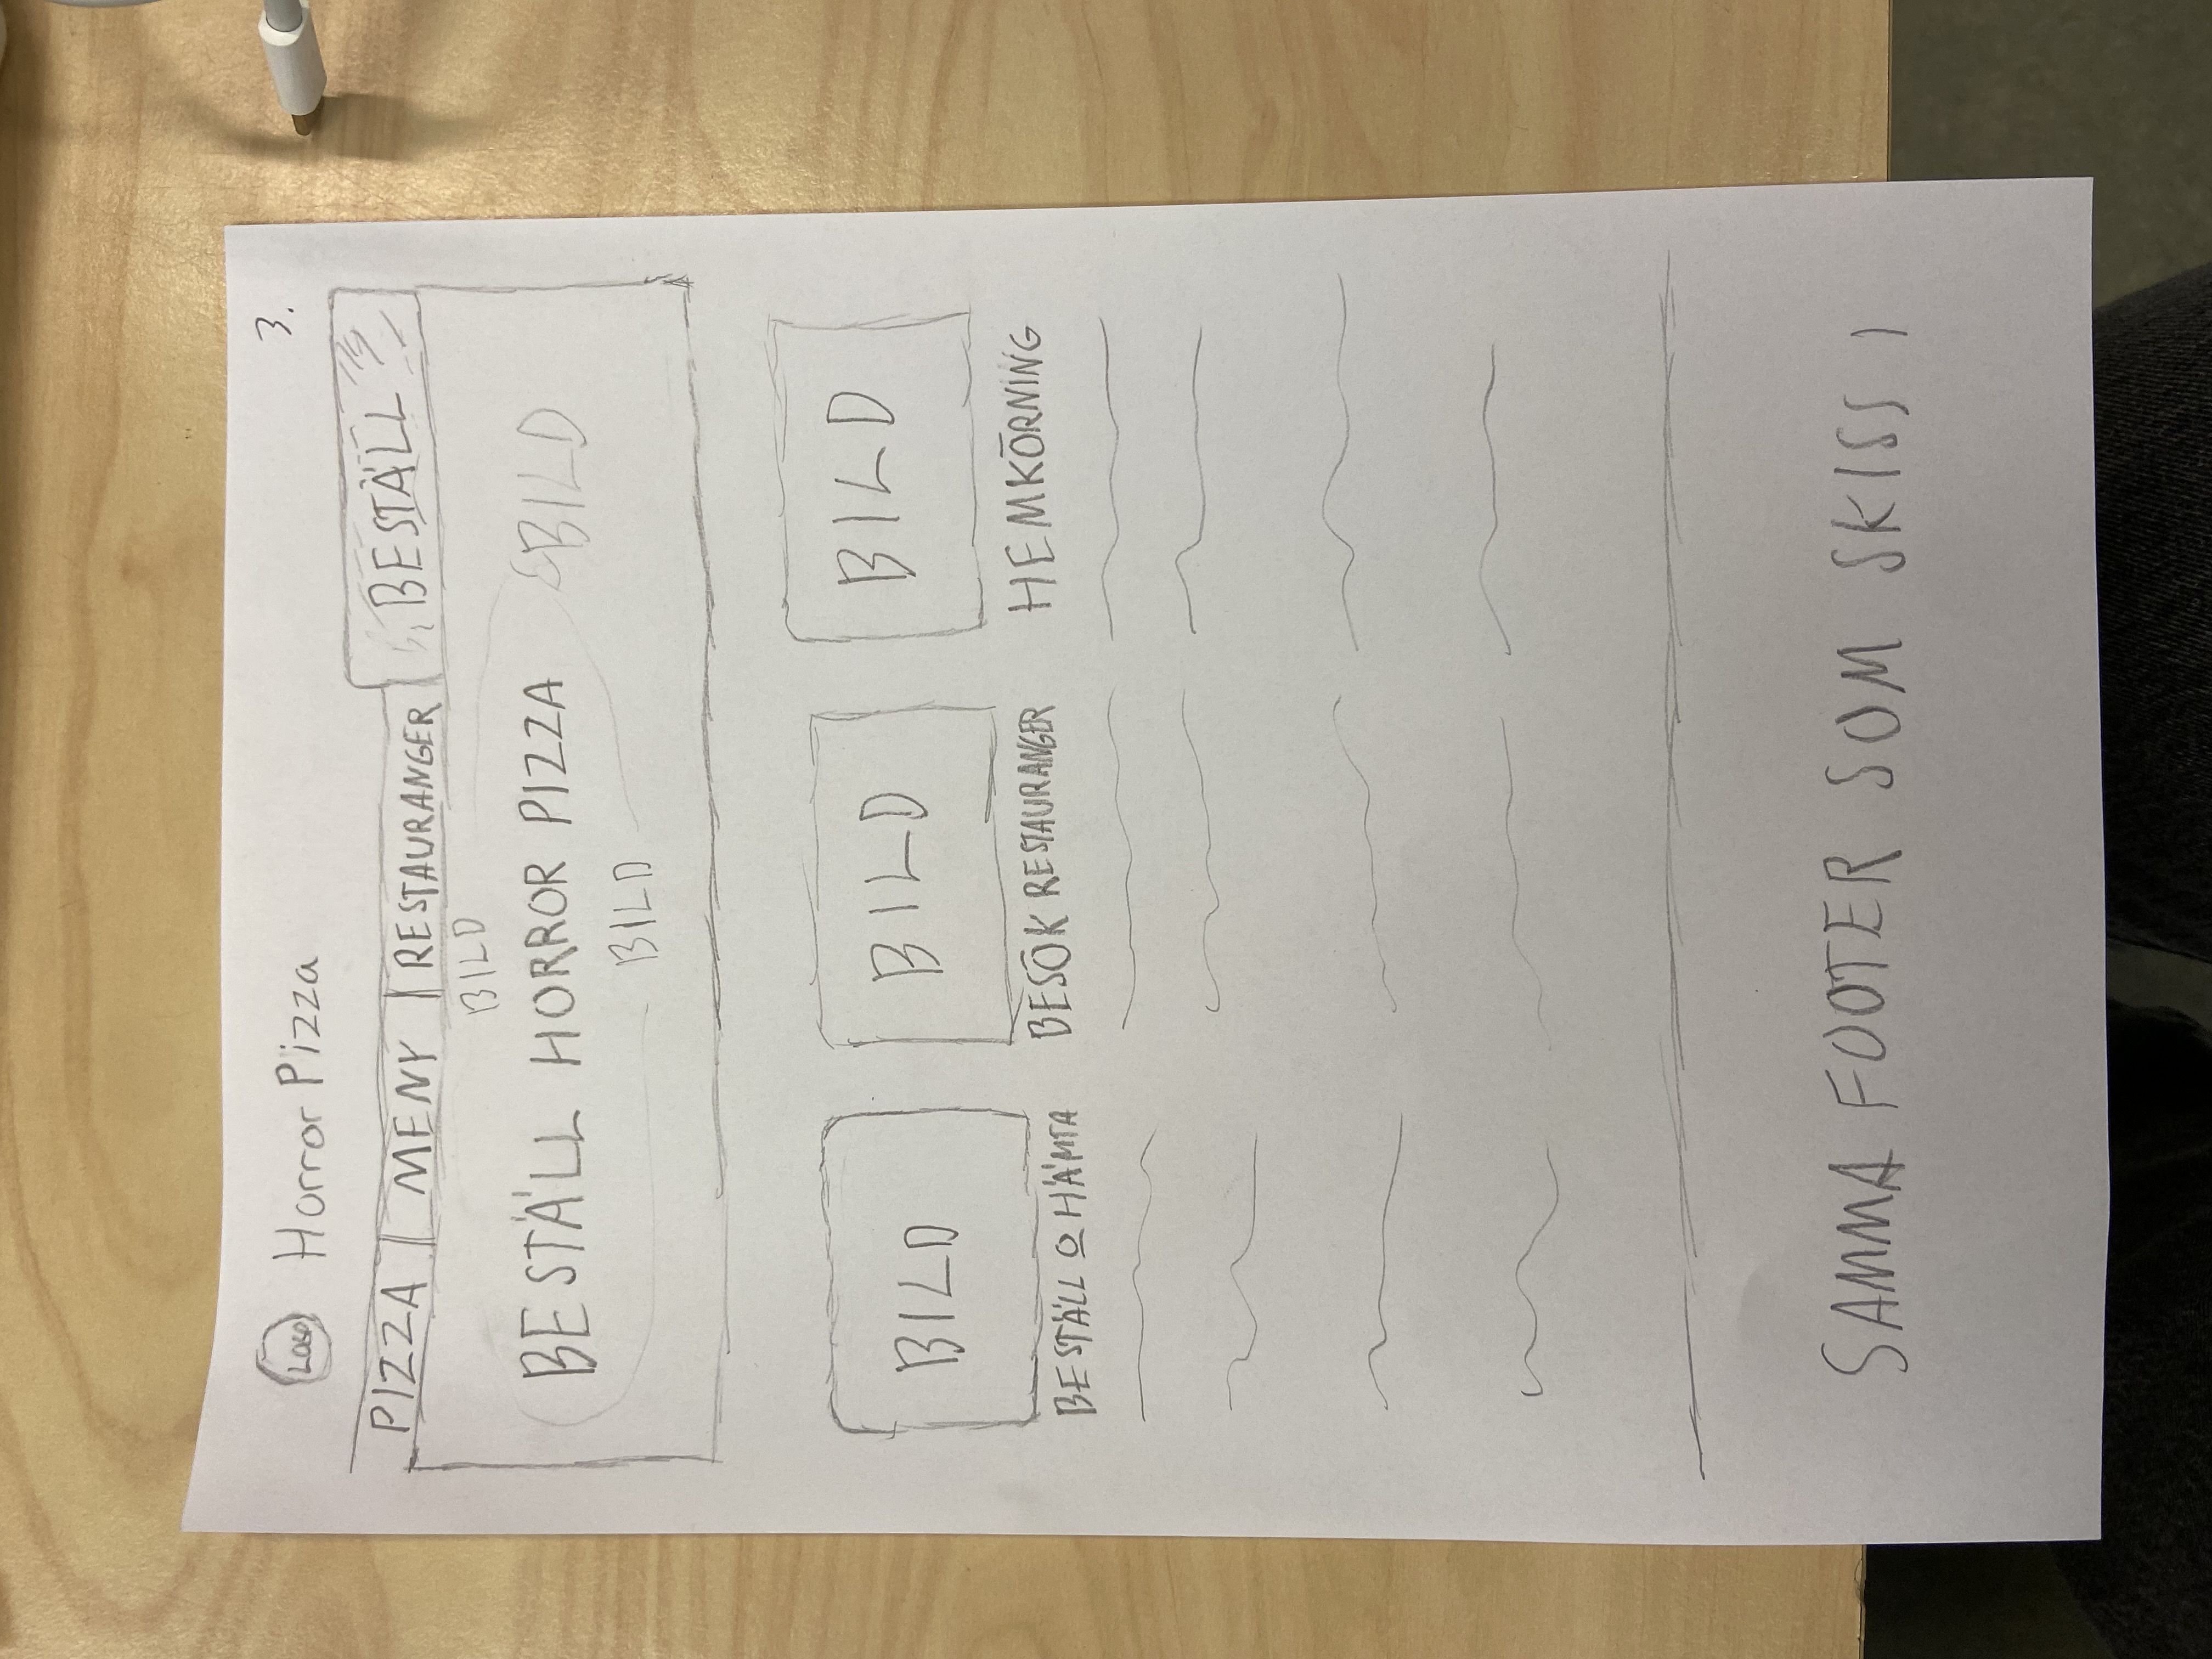 LOGO Horror Pizza
3.
PIZZA | MENY | RESTAURANGER
BESTÄLL
BILD
BESTÄLL HORROR PIZZA
BILD
BILD
BILD
BILD
BILD
BESTÄLL O HÄMTA
BESÖK RESTAURANGER
HEMKÖRNING
SAMMA FOOTER SOM SKISS 1